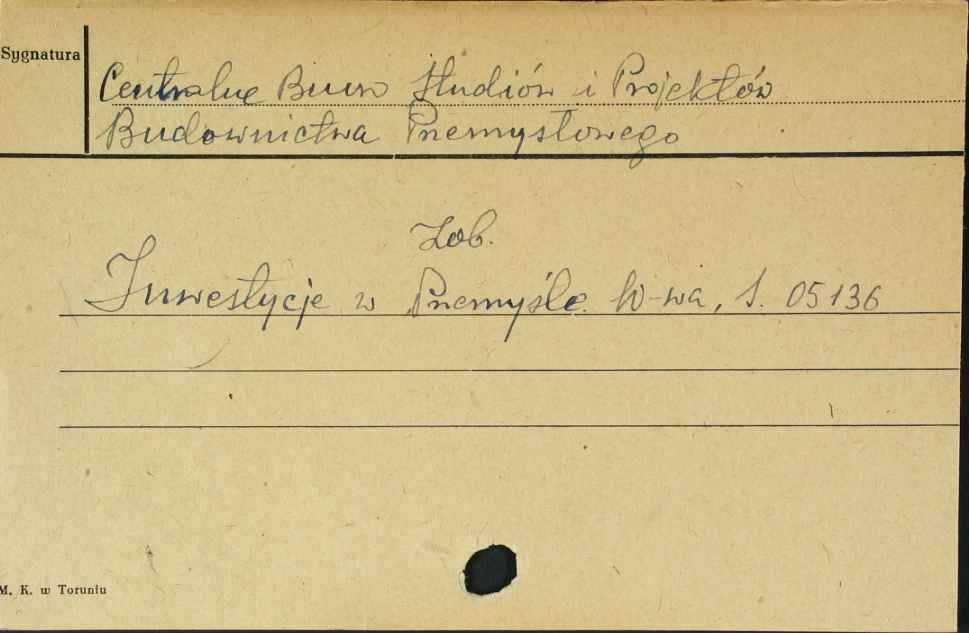 Sygnatura
Centralne Biuro Studiów i Projektów
Budownictwa Przemysłowego
Zob.
Inwestycje w Przemyśle. W-wa, S. 05136
M. K. w Toruniu